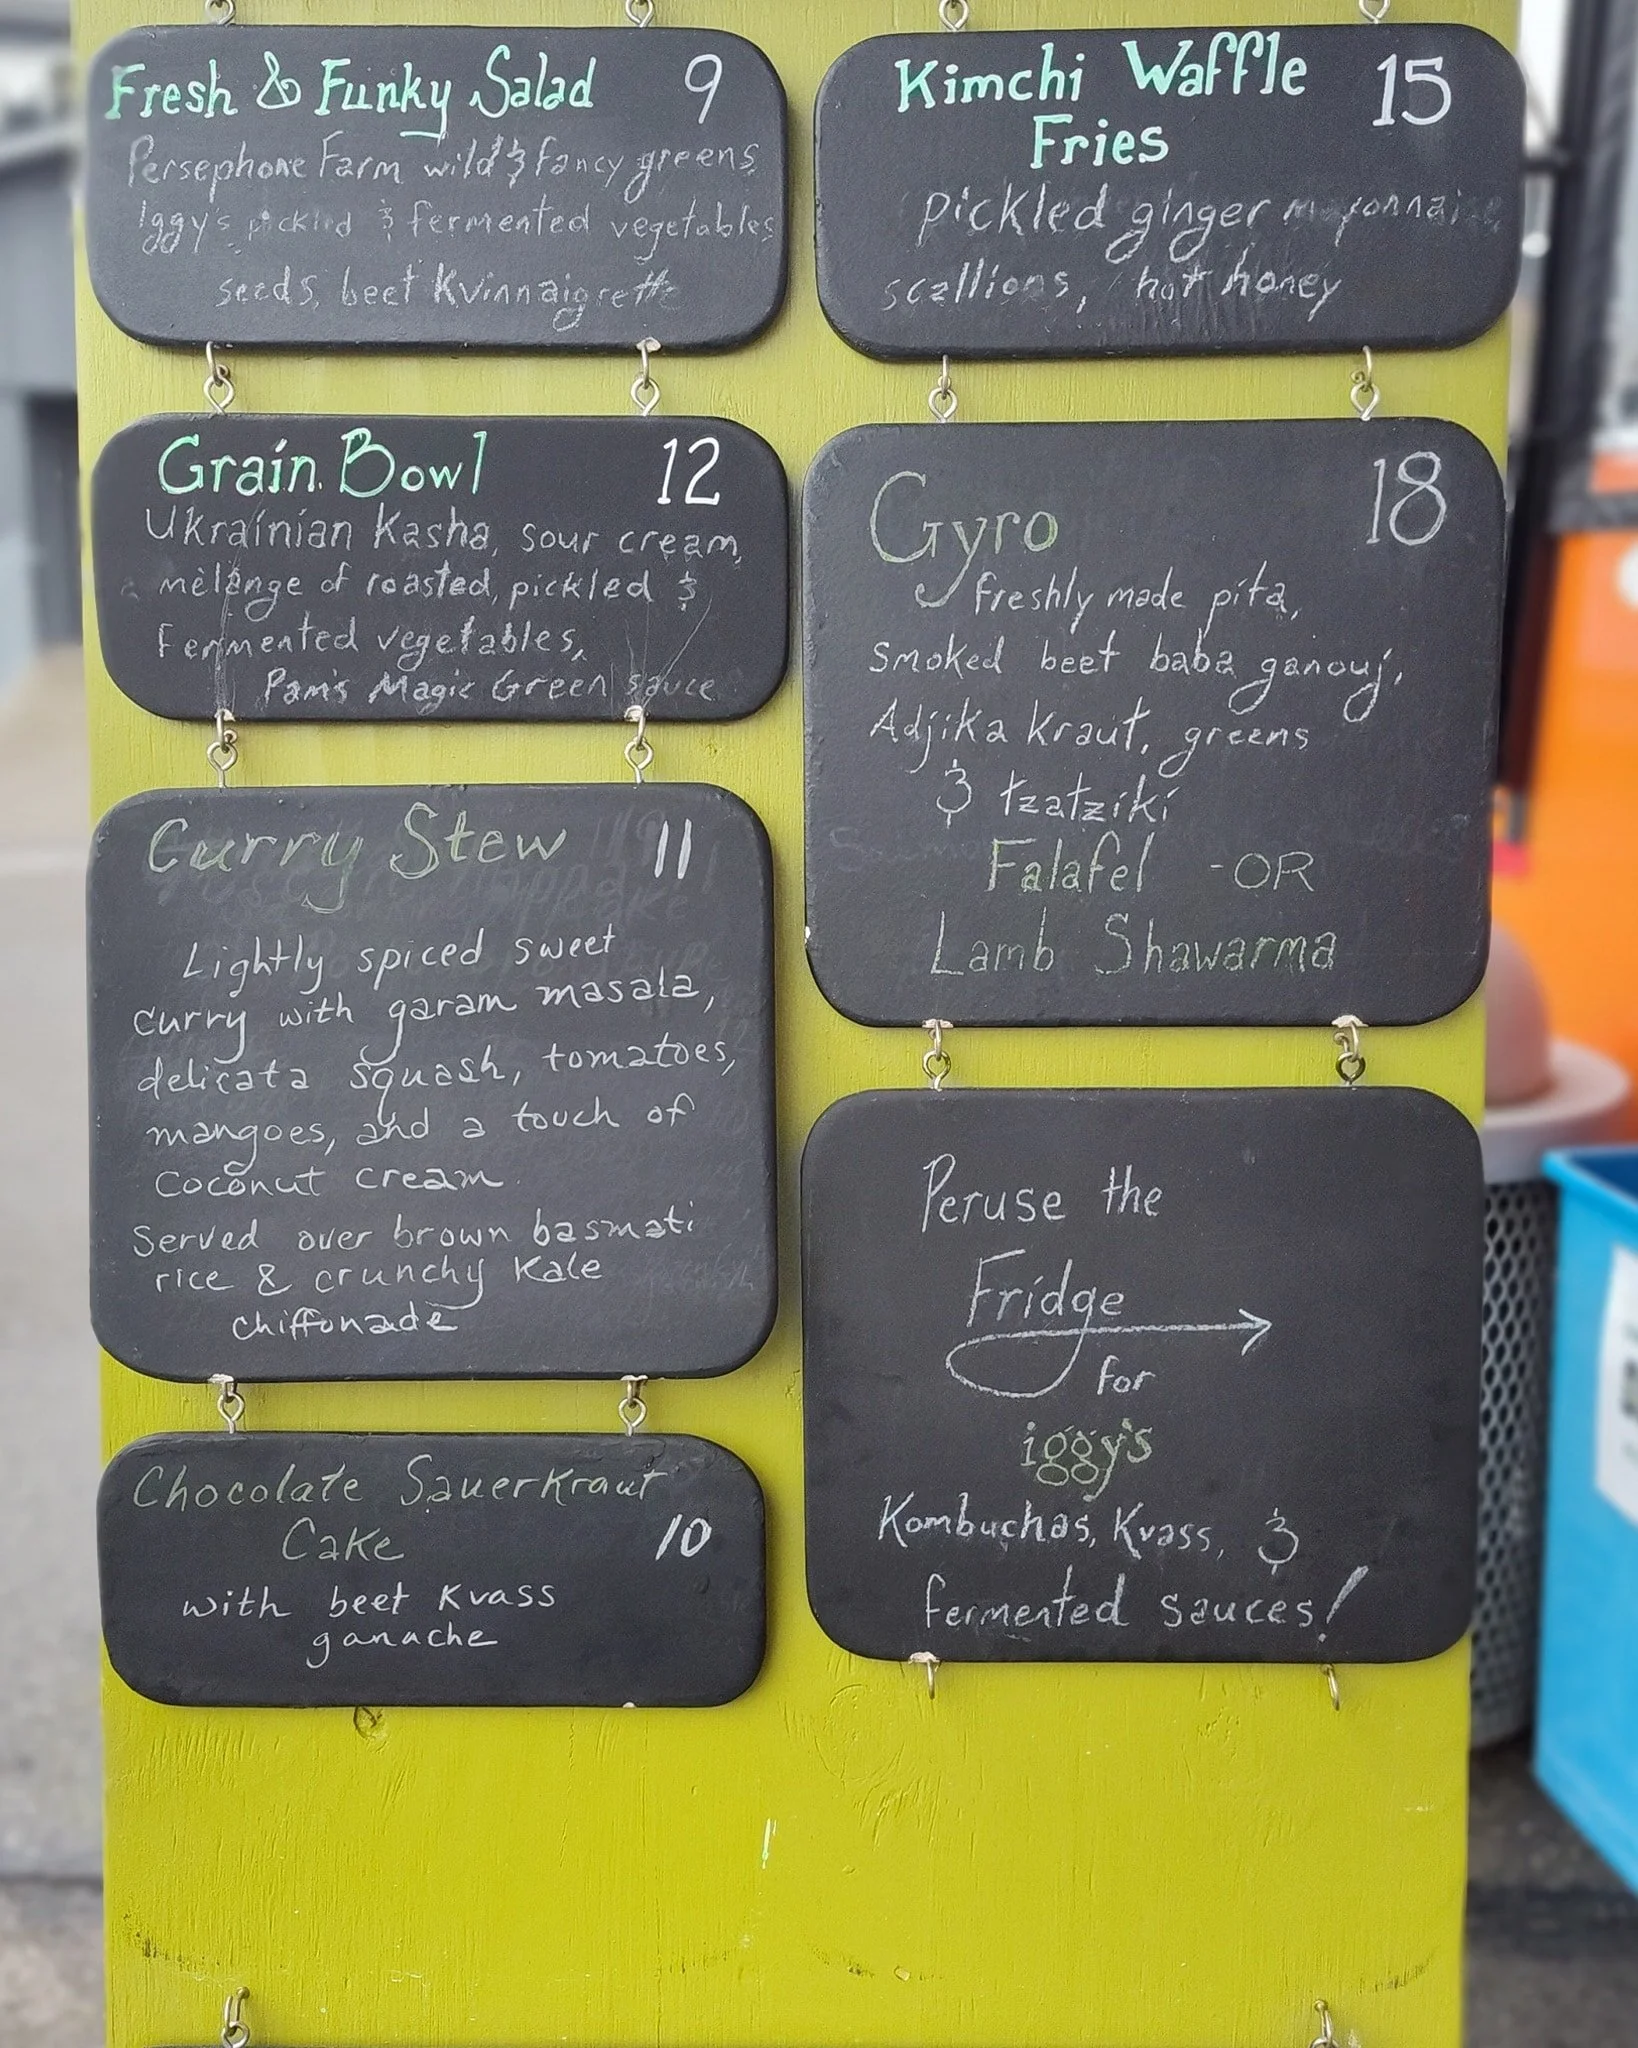 Fresh & Funky Salad 9
Persephone Farm wild & fancy greens
Iggy's pickled & fermented vegetables
seeds, beet Kvinnaigrette
Grain Bowl 12
Ukrainian Kasha, sour cream,
mèlange of roasted, pickled &
Fermented vegetables,
Pam's Magic Green sauce
Curry Stew 11
Lightly spiced sweet
curry with garam masala,
delicata squash, tomatoes,
mangoes, and a touch of
coconut cream.
Served over brown basmati
rice & crunchy Kale
chiffonade
Chocolate Sauerkraut
Cake 10
with beet Kvass
ganache
Kimchi Waffle 15
Fries
pickled ginger mayonnaise
scallions, hot honey
Gyro 18
freshly made pita,
smoked beet baba ganouj,
Adjika Kraut, greens
& tzatziki
Falafel - OR
Lamb Shawarma
Peruse the
Fridge
for
iggy's
Kombuchas, Kvass, &
fermented sauces!